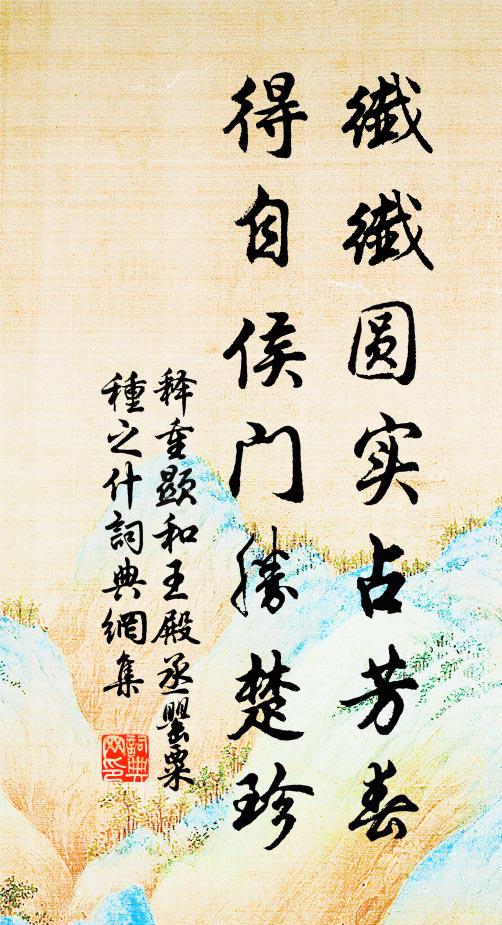 纖纖圆实占芳春
得自侯门勝楚珍
释重顯和王殿丞罌粟
種之什詞典網集
詞典
网印